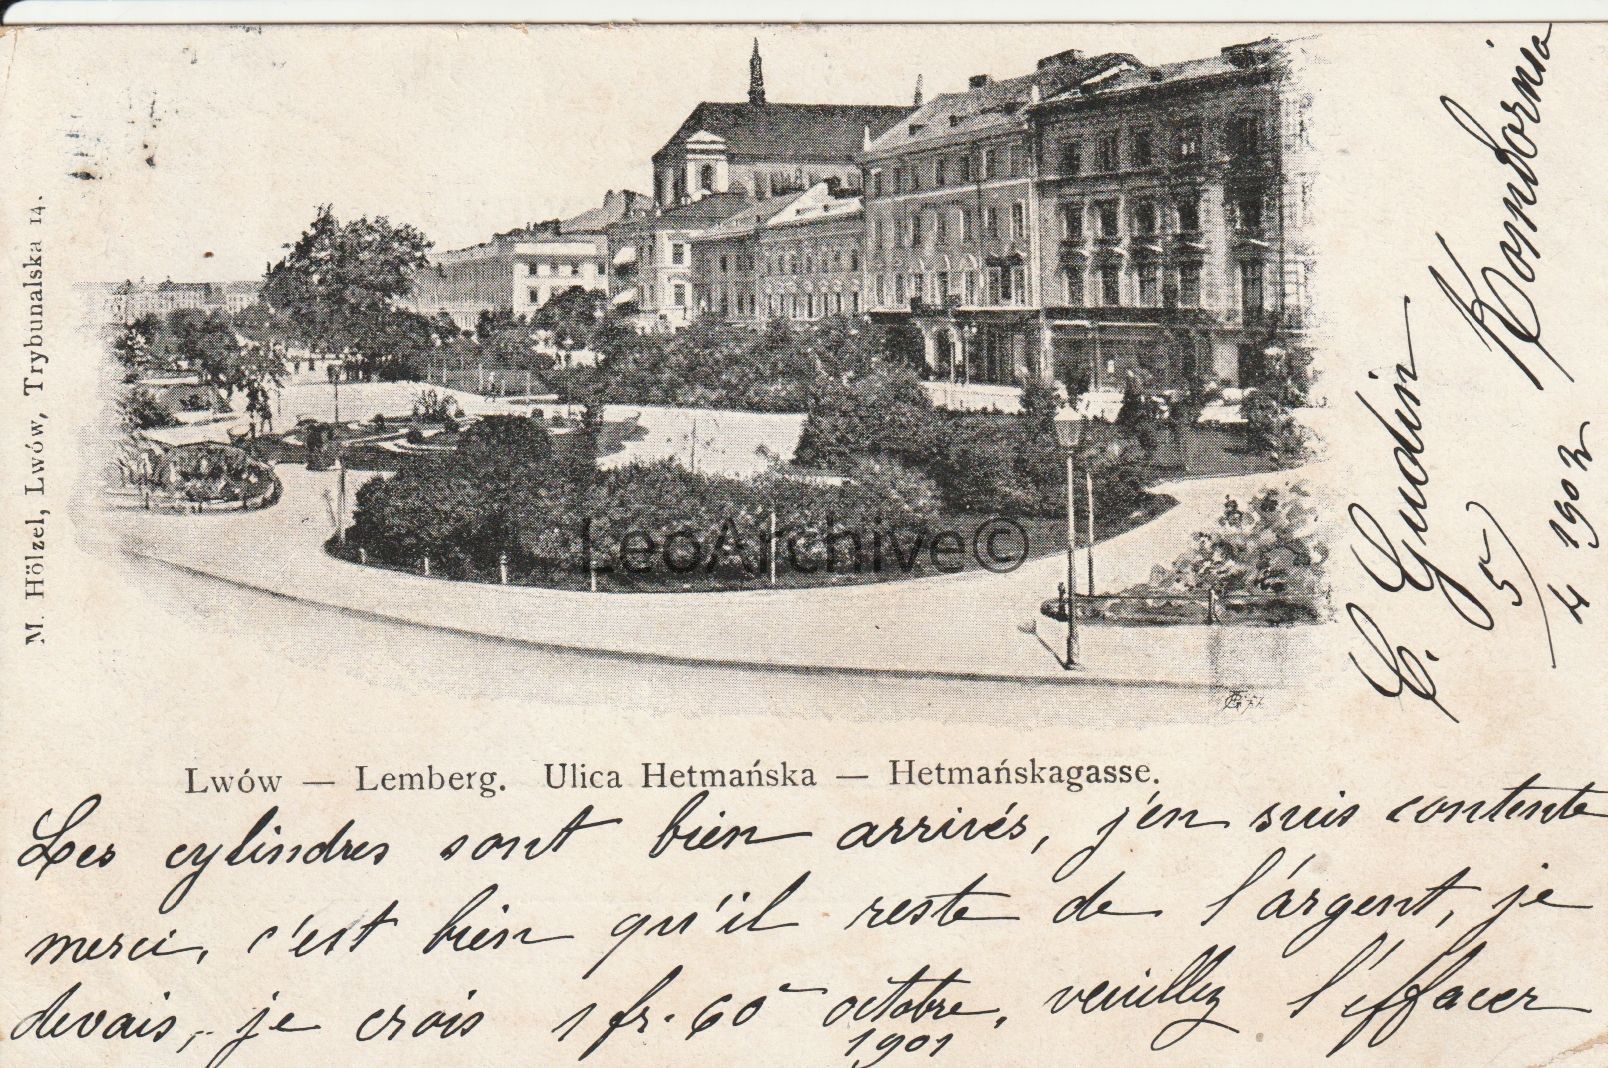 M. Hölzel, Lwów, Trybunalska 14.
LeoArchive©
Lwów — Lemberg. Ulica Hetmańska — Hetmańskagasse.
Les cylindres sont bien arrivés, j'en suis contente
merci, c'est bien qu'il reste de l'argent, je
devais, je crois 1 fr. 60 octobre, veuillez l'effacer
1901
E. Gudin
Kombornia
5/4 1902